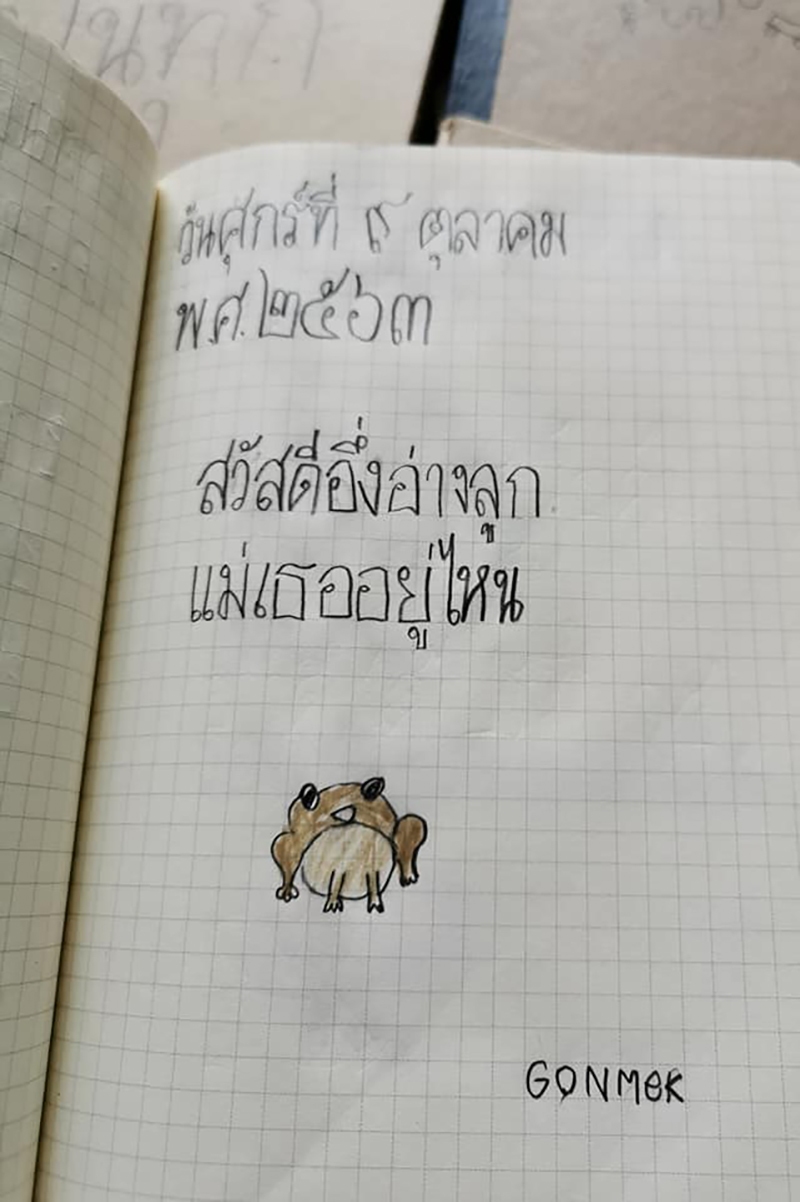 วันศุกร์ที่ ๙ ตุลาคม
พ.ศ.๒๕๖๓
สวัสดีอึ่งอ่างลูก
แม่เธออยู่ไหน
GONMEK